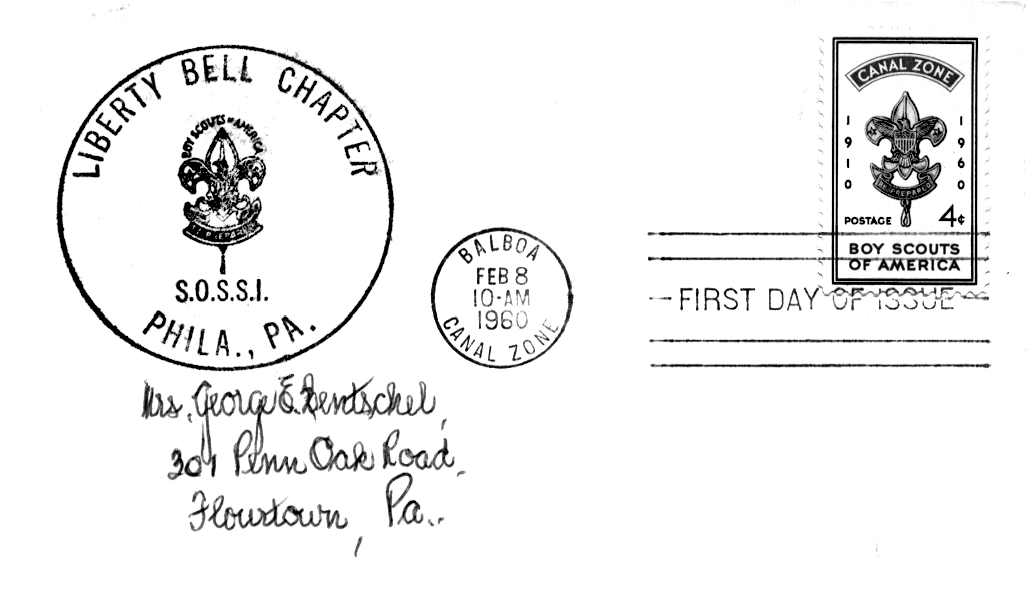 LIBERTY BELL CHAPTER
BOY SCOUTS OF AMERICA
BE PREPARED
S.O.S.S.I.
PHILA., PA.
BALBOA
FEB 8
10-AM
1960
CANAL ZONE
CANAL ZONE
1910
1960
BE PREPARED
POSTAGE 4¢
BOY SCOUTS
OF AMERICA
FIRST DAY OF ISSUE
Mrs. George E. Bentschel,
301 Penn Oak Road,
Flourtown, Pa..